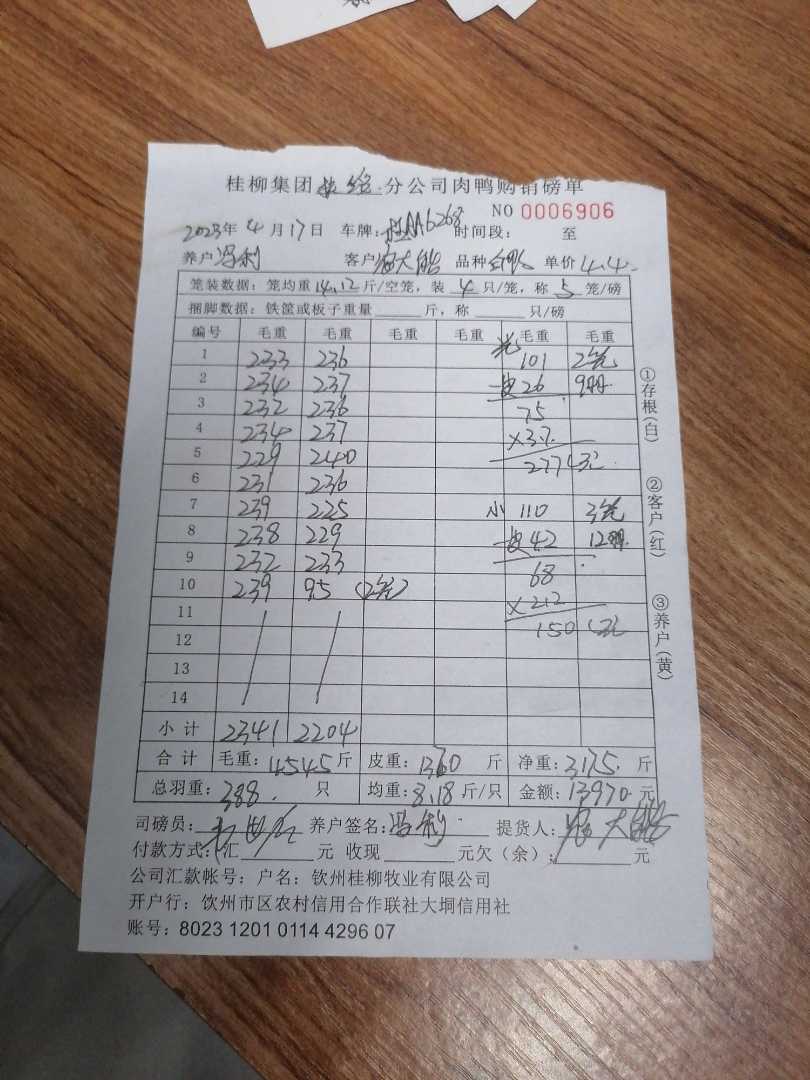 桂柳集团 分公司肉鸭购销磅单
NO 0006906
2023年4月17日 车牌: 桂AA6268 时间段: 至
养户 冯利 客户 大 品种 单价 4.4
笼装数据: 笼均重14.12斤/空笼, 装 4 只/笼, 称 5 笼/磅
捆脚数据: 铁筐或板子重量 斤, 称 只/磅
编号 毛重 毛重 毛重 毛重 毛重 毛重
1 233 236 101 2笼
2 234 237 26 9只
3 232 236 75
4 234 237 ×3.7
5 229 240 277元
6 231 236
7 239 225 小 110 3笼
8 238 229 42 12只
9 232 233 68
10 239 95 (2笼) ×2.2
11 150元
12
13
14
小计 2341 2204
合计 毛重: 4545斤 皮重: 1360 斤 净重: 3175 斤
总羽重: 388 只 均重: 8.18斤/只 金额: 13970元
司磅员: 养户签名: 冯利 提货人: 大
付款方式: 汇 元 收现 元欠(余): 元
公司汇款帐号: 户名: 钦州桂柳牧业有限公司
开户行: 钦州市区农村信用合作联社大垌信用社
账号: 8023 1201 0114 4296 07
①存根(白)
②客户(红)
③养户(黄)